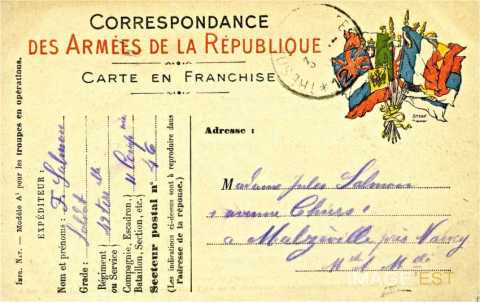 CORRESPONDANCE
DES ARMÉES DE LA RÉPUBLIQUE
CARTE EN FRANCHISE
Adresse :
Madame Jules Salmon
avenue
a Malzéville près Nancy
Mthe et Mlle
IMAGE'EST
Modèle A¹ pour les troupes en opérations.
EXPÉDITEUR :
Nom et prénoms : F. Salmon
Grade : Soldat
Régiment
ou Service)
Compagnie, Escadron,
Bataillon, Section, etc.)
Secteur postal n° 46
(Les indications ci-dessus sont à reproduire dans
l'adresse de la réponse.)